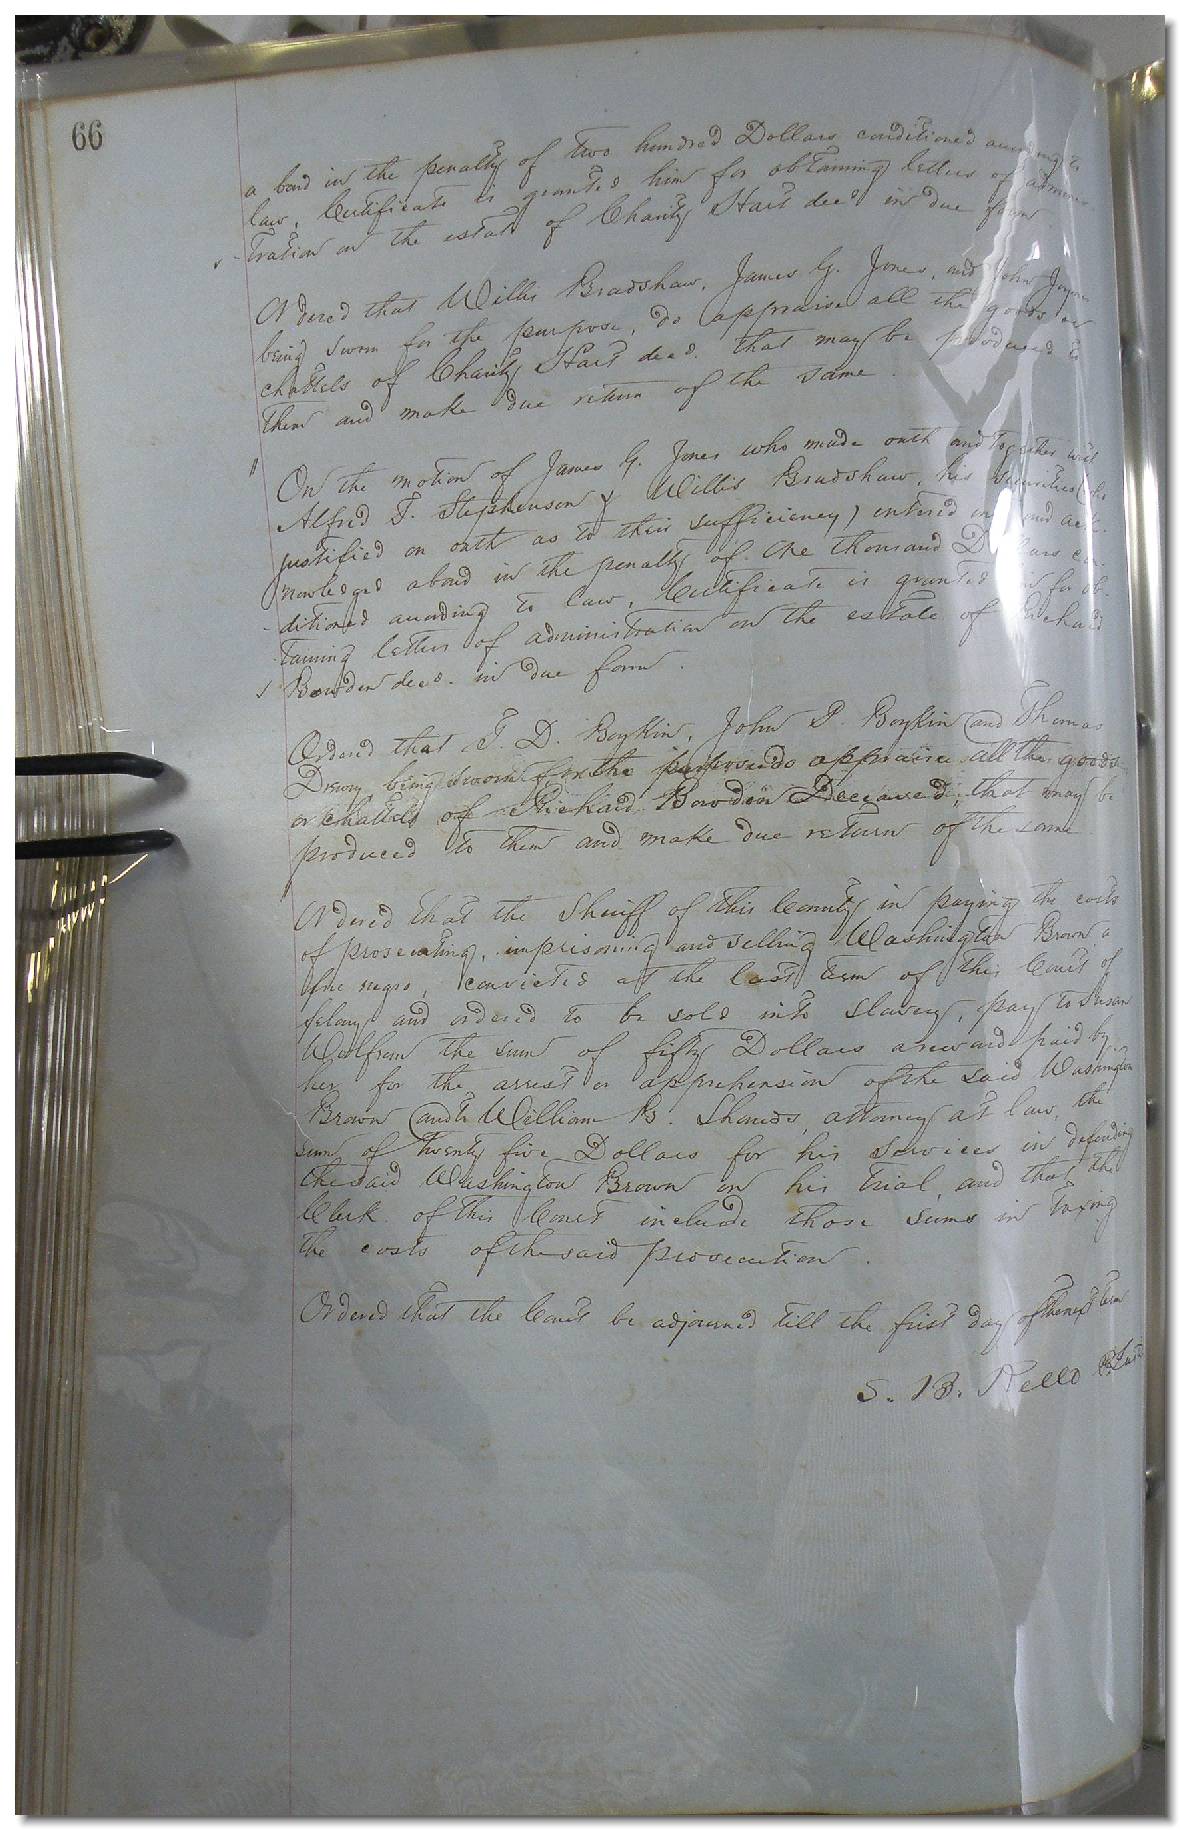 66
a bond in the penalty of two hundred Dollars conditioned according to
law, Certificate is granted him for obtaining letters of adminis
tration on the estate of Charity Hart decd in due form
Ordered that Willis Bradshaw, James G. Jones, and John Joyner
being sworn for the purpose, do appraise all the goods or
chattels of Charity Hart decd. that may be produced to
them and make due return of the same.
On the motion of James G. Jones who made oath and together with
Alfred T. Stephenson & Willis Bradshaw, his securities (who
justified on oath as to their sufficiency) entered into and ack-
nowledged a bond in the penalty of One thousand Dollars con-
ditioned according to law, Certificate is granted him for ob-
taining letters of administration on the estate of Richard
Bowden decd. in due form.
Ordered that T. D. Boykin, John P. Boykin and Thomas
Drewry being sworn for the purpose do appraise all the goods
or chattels of Richard Bowden Deceased, that may be
produced to them and make due return of the same
Ordered that the Sheriff of this County in paying the costs
of prosecuting, imprisoning and selling Washington Brown a
free negro, convicted at the last term of this Court of
felony and ordered to be sold into slavery, pay to Susan
the sum of fifty Dollars a reward paid by
her for the arrest or apprehension of the said Washington
Brown and to William B. Shands, attorney at law, the
sum of twenty five Dollars for his services in defending
the said Washington Brown on his trial, and that the
Clerk of this Court include those sums in taxing
the costs of the said prosecution.
Ordered that the Court be adjourned till the first day of the next term
S. B. Kello P. Just